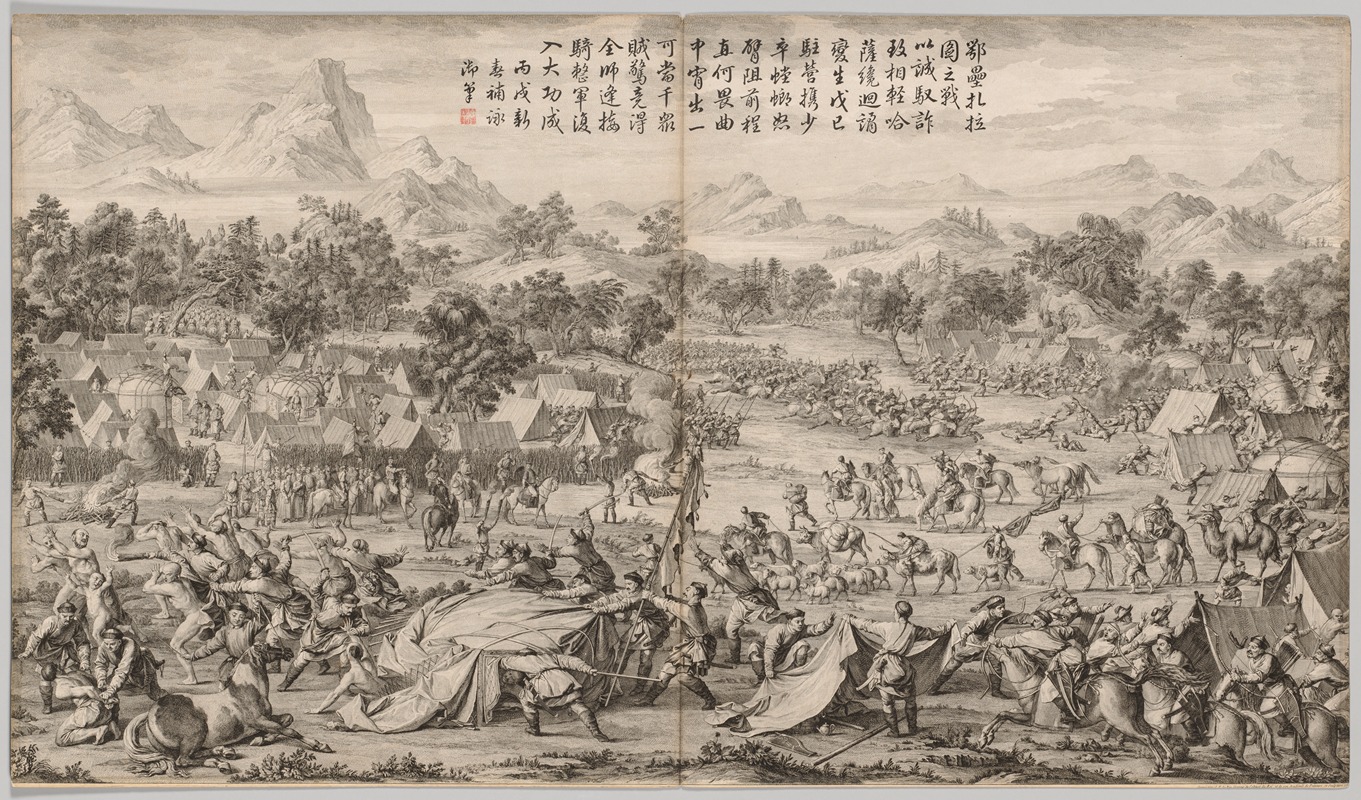 鄂壘扎拉
圖之戰
以誠馭詐
致相輕哈
薩繞迴誦
變生戊己
駐營攜少
卒螳螂怒
臂阻前程
直何畏曲
中宵出一
可當千衆
賊驚竟得
全師逢接
騎整軍復
入大功成
丙戌新
春補詠
御筆